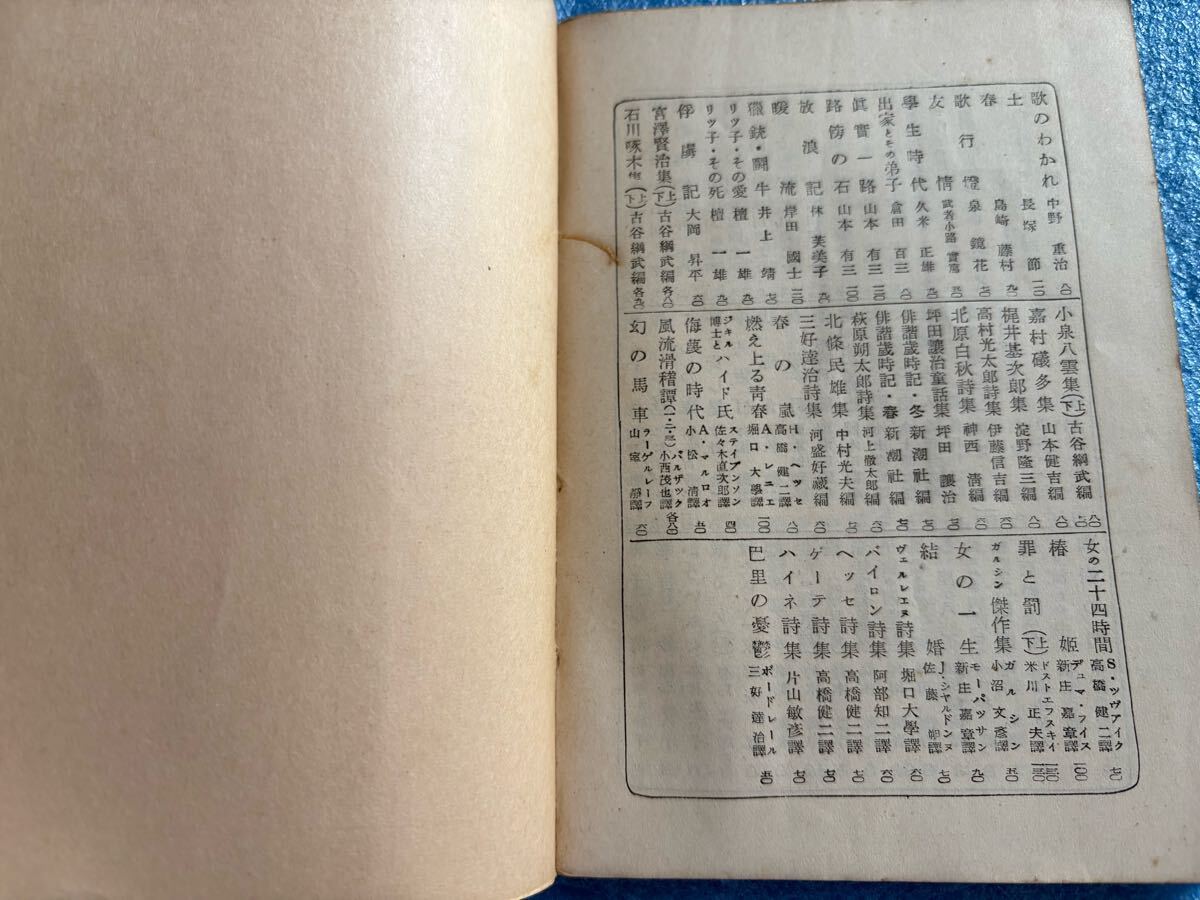 歌のわかれ 中野重治 八〇
土 長塚節 一一〇
春 島崎藤村 九〇
歌行燈 泉鏡花 七〇
友情 武者小路實篤 五〇
學生時代 久米正雄 九〇
出家とその弟子 倉田百三 八〇
眞實一路 山本有三 一〇〇
路傍の石 山本有三 一〇〇
放浪記 林芙美子 九〇
暖流 岸田國士 一一〇
獵銃・闘牛 井上靖 七〇
リツ子・その愛 檀一雄 九〇
リツ子・その死 檀一雄 九〇
俘虜記 大岡昇平 六〇
宮澤賢治集(上下) 古谷綱武編 各八〇
石川啄木集(上下) 古谷綱武編 各九〇
小泉八雲集(上下) 古谷綱武編
嘉村礒多集 山本健吉編 八〇
梶井基次郎集 淀野隆三編 八〇
高村光太郎詩集 伊藤信吉編 六〇
北原白秋詩集 神西清編
坪田讓治童話集 坪田讓治 七〇
俳諧歲時記・冬 新潮社編
俳諧歲時記・春 新潮社編 七〇
萩原朔太郎詩集 河上徹太郎編 六〇
北條民雄集 中村光夫編 七〇
三好達治詩集 河盛好藏編 六〇
春の嵐 H・ヘッセ 高橋健二譯 八〇
燃え上る青春 A・レニエ 堀口大學譯 一〇〇
ジキル博士とハイド氏 スティブンソン 佐々木直次郎譯 四〇
侮蔑の時代 A・マルロオ 小松清譯 五〇
風流滑稽譚(一・二・三) バルザック 小西茂也譯 各八〇
幻の馬車 ラーゲルレーフ 山室靜譯 六〇
女の二十四時間 S・ツヴァイク 高橋健二譯 七〇
椿姫 デュマ・フイス 新庄嘉章譯 一〇〇
罪と罰(上下) ドストエフスキイ 米川正夫譯
ガルシン傑作集 ガルシン 小沼文彦譯 五〇
女の一生 モーパッサン 新庄嘉章譯 九〇
結婚 J・シャルドンヌ 佐藤朔譯 七〇
ヴェルレエヌ詩集 堀口大學譯 六〇
バイロン詩集 阿部知二譯 六〇
ヘッセ詩集 高橋健二譯 七〇
ゲーテ詩集 高橋健二譯 七〇
ハイネ詩集 片山敏彦譯 七〇
巴里の憂鬱 ボードレール 三好達治譯 五〇